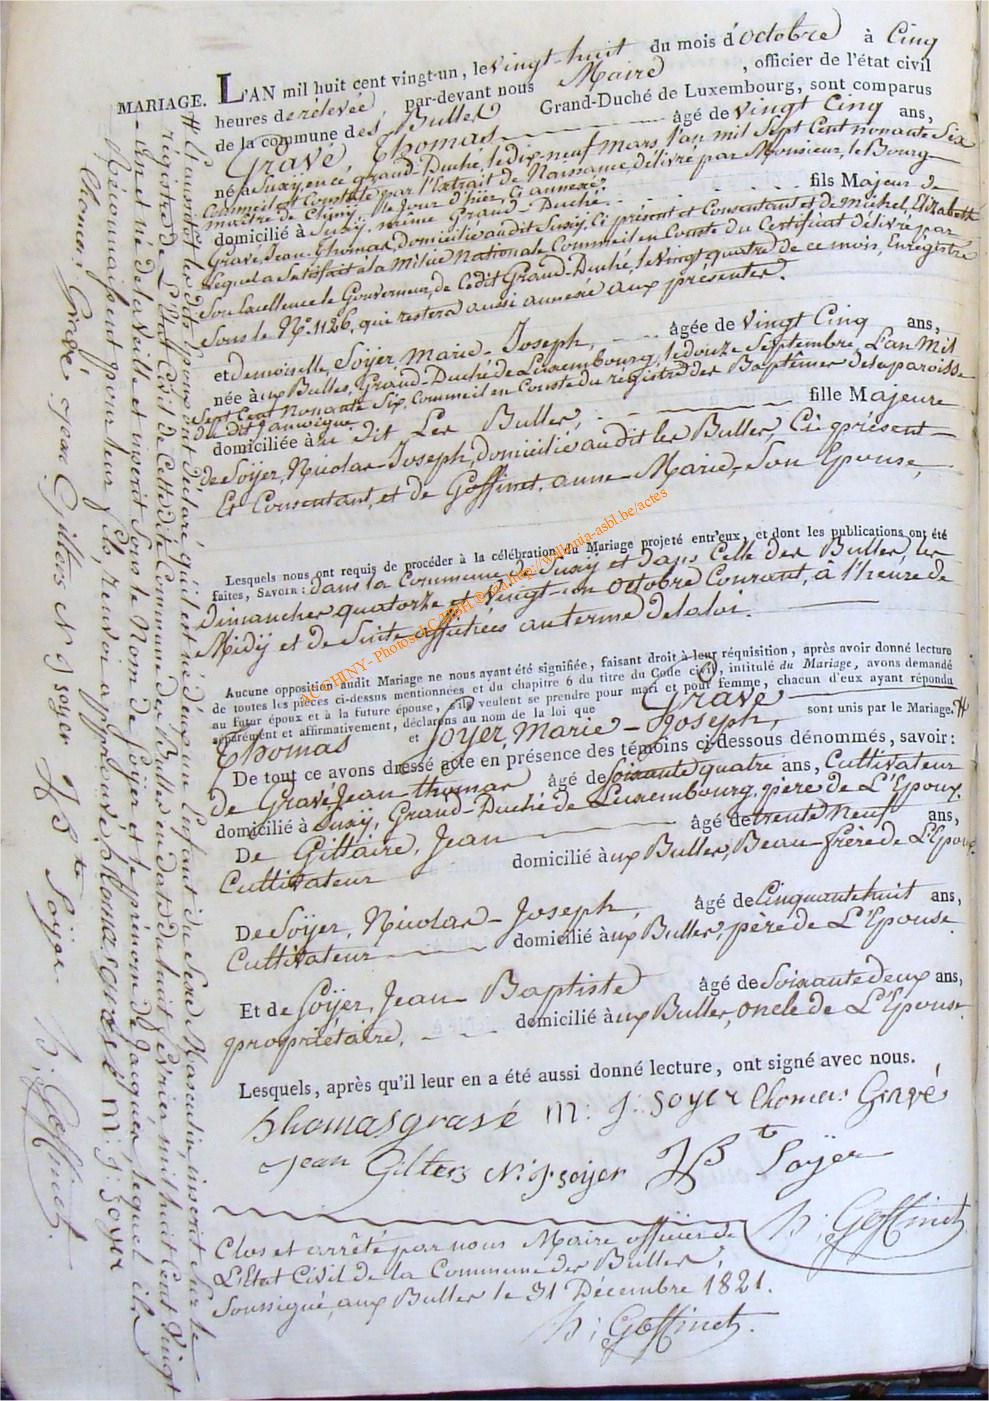 MARIAGE.
L'AN mil huit cent vingt-un, le vingt-huit du mois d'octobre à Cinq
heures de rélevée, par-devant nous Maire, officier de l'état civil
de la commune des Bulles Grand-Duché de Luxembourg, sont comparus
Gravé, Thomas âgé de vingt Cinq ans,
né à Suxÿ, en ce grand-Duché, le dix-neuf mars, l'an mil Sept Cent nonante Six
Comme il est Constaté par l'Extrait de Naissance, délivré par Monsieur, le Bourg-
mestre de Chiny, le Jour d'hier, Ci annexé.
domicilié à Suxÿ, même Grand-Duché. fils Majeur de
Gravé, Jean-Thomas, domicilié audit Suxÿ, Ci présent et Consentant et de Michel, Elizabeth
lequel a Satisfait à la Milice Nationale Comme il en Conste du Certificat délivré par
Son Excellence le Gouverneur, de Cedit Grand-Duché, le vingt quatre de ce mois, Enregistré
Sous le No. 1126, qui restera aussi annexée aux présentes.
et demoiselle Soÿer Marie-Joseph, âgée de vingt Cinq ans,
née aux Bulles, Grand-Duché de Luxembourg, le douze Septembre, L'an Mil
Sept Cent Nonante Six, Comme il en Conste du registre des Baptêmes de la paroisse
dudit Jamoigne
domiciliée au dit Les Bulles, fille Majeure
de Soÿer, Nicolas-Joseph, domicilié audit les Bulles, Ci présent
Et Consentant, et de Goffinet, anne-Marie, Son Epouse,
Lesquels nous ont requis de procéder à la célébration du Mariage projeté entr'eux, et dont les publications ont été
faites, SAVOIR: dans la Commune de Suxÿ et dans Celle des Bulles, les
Dimanches quatorze et vingt-un Octobre Courant, à l'heure de
Midÿ et de Suite affichées au terme de la loi.
Aucune opposition audit Mariage ne nous ayant été signifiée, faisant droit à leur réquisition, après avoir donné lecture
de toutes les pièces ci-dessus mentionnées et du chapitre 6 du titre du Code civil, intitulé du Mariage, avons demandé
au futur époux et à la future épouse, s'ils veulent se prendre pour mari et pour femme, chacun d'eux ayant répondu
séparément et affirmativement, déclarons au nom de la loi que Gravé
Thomas et Soÿer, Marie-Joseph, sont unis par le Mariage.
De tout ce avons dressé acte en présence des témoins ci-dessous dénommés, savoir:
De Gravé Jean-thomas âgé de Soixante quatre ans, Cultivateur
domicilié à Suxÿ, Grand-Duché de Luxembourg, père de L'Epoux,
De Giltaire, Jean âgé de trente Neuf ans,
Cultivateur domicilié aux Bulles, Beau-frère de L'Epoux
De Soÿer, Nicolas-Joseph, âgé de Cinquante huit ans,
Cultivateur domicilié aux Bulles, père de L'Epouse
Et de Soÿer, Jean-Baptiste âgé de Soixante deux ans,
propriétaire, domicilié aux Bulles, oncle de L'Epouse
Lesquels, après qu'il leur en a été aussi donné lecture, ont signé avec nous.
thomas gravé M: J: Soyer Thomas Gravé
Jean Gilters N: J: Soyer JBte Soÿer
h: Goffinet
Clos et arrêté par nous Maire officier de
L'Etat Civil de la Commune des Bulles,
Soussigné, aux Bulles le 31 Décembre 1821.
h: Goffinet.
Et aussitôt lesdits Epoux ont déclaré qu'il est né d'eux un Enfant du Sexe Masculin, inscrit Sur le
régistre de L'Etat Civil de Cette dite Commune des Bulles en date du huit fevrier, mil huit Cent vingt
un et né de la veille et inscrit Sous le Nom de Soÿer et le prénom de Jacques, lequel ils
Réconnaissent pour leur fils, renvoi approuvé. thomas gravé M: J: Soyer
Thomas Gravé Jean Gilters N: J: soyer JBte Soÿer h: Goffinet.
ACCHINY- Photos ACMBH © coll http://wallonia-asbl.be/actes